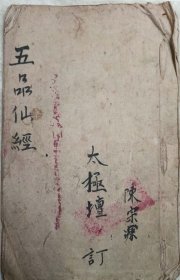 五品仙經
太極壇 訂
陳宗